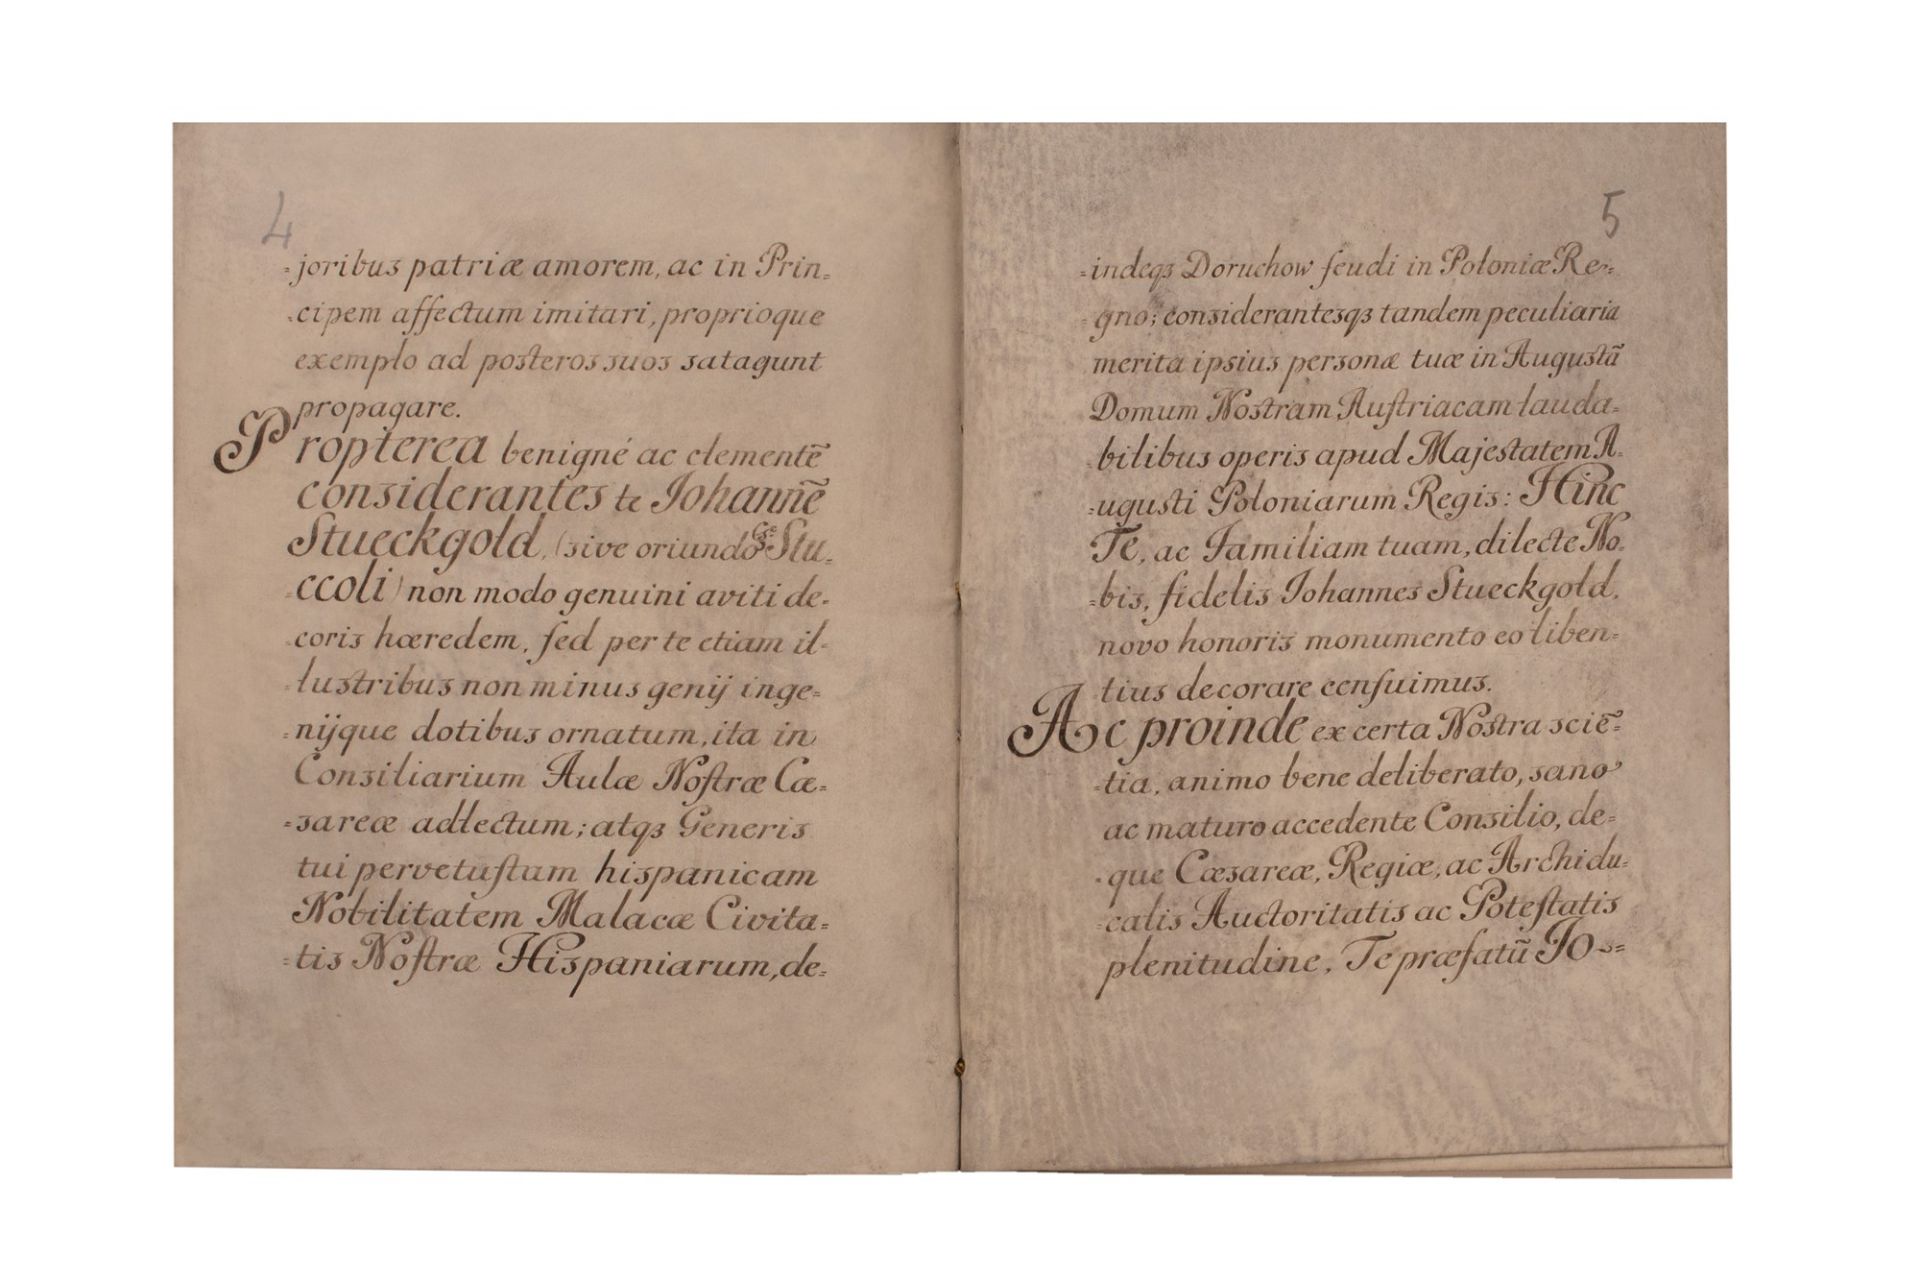 4
=joribus patriæ amorem, ac in Prin=
=cipem affectum imitari, proprioque
exemplo ad posteros suos satagunt
propagare.
Propterea benigné ac clementẽ
considerantes te Johannẽ
Stueckgold, (sive oriundo Stu=
=ccoli) non modo genuini aviti de=
=coris hæredem, ſed per te etiam il=
=lustribus non minus genij inge=
=nijque dotibus ornatum, ita in
Consiliarium Aulæ Noſtræ Cæ=
=sareæ adlectum; atqꝫ Generis
tui pervetuſtam hispanicam
Nobilitatem Malacæ Civita=
=tis Noſtræ Hispaniarum, de=
5
=indeqꝫ Doruchow feudi in Poloniæ Re=
=gno; considerantesqꝫ tandem peculiaria
merita ipsius personæ tuæ in Augustã
Domum Nostram Auſtriacam lauda=
=bilibus operis apud Majestatem A=
=ugusti Poloniarum Regis: Hinc
Te, ac Familiam tuam, dilecte No=
=bis, fidelis Johannes Stueckgold,
novo honoris monumento eo liben=
tius decorare cenſuimus.
Ac proinde ex certa Nostra sciẽ=
=tia, animo bene deliberato, sano
ac maturo accedente Consilio, de=
=que Cæsareæ, Regiæ, ac Archidu=
=calis Auctoritatis ac Poteſtatis
plenitudine, Te præfatũ Jo=